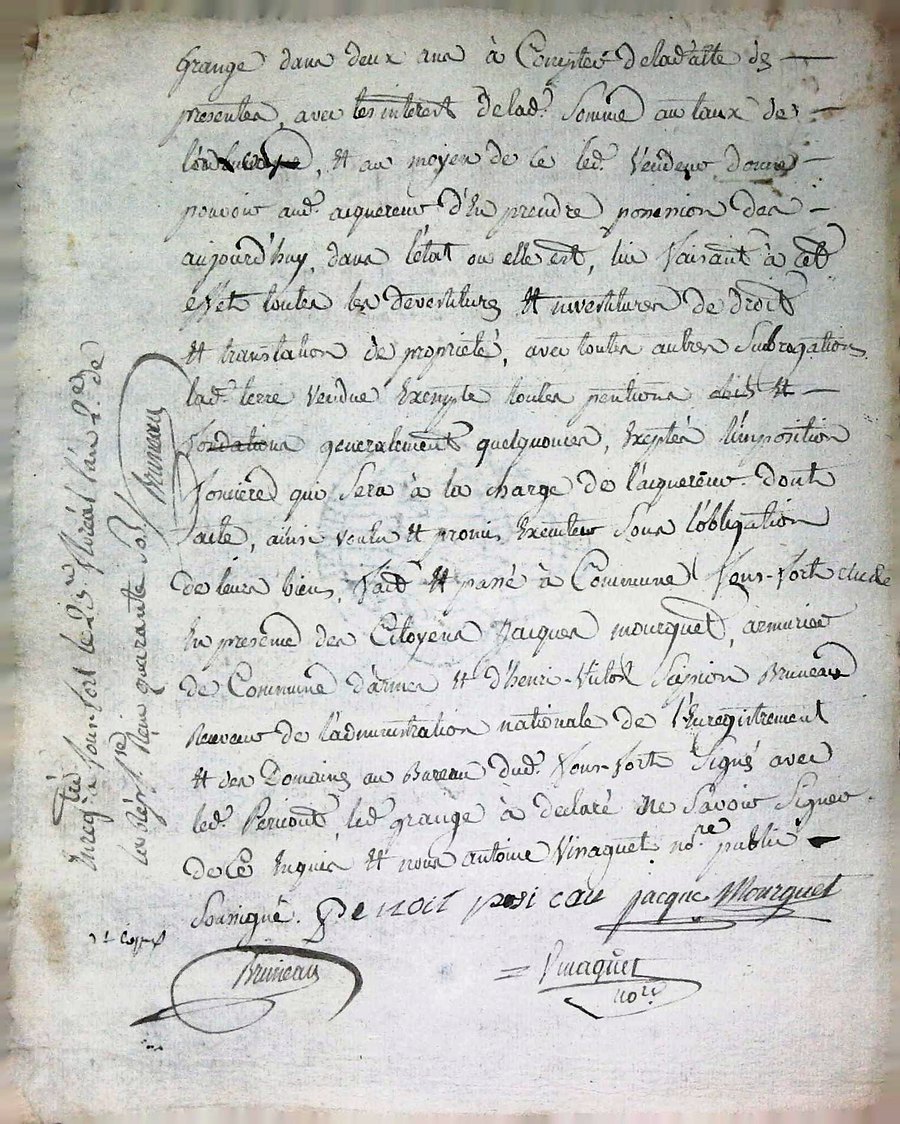 Grange dans deux ans à Compter de lad. datte des
presentes, avec les interet de lad. Somme au taux de
, et au moyen de ce led. Vendeur donne
pouvoir aud. aiquereur d'En prendre possession des
aujourd'huy, dans l'état ou elle est, lui faisant à cet
effet toutes les devestitures et investitures de droit
et translation de proprieté, avec toutes autres Subrogations
lad. terre Vendue Exempte toutes pentions et
fondations generalement quelquonies, Exeptés l'imposition
fonciere qui Sera à la charge de l'aiquereur. dont
acte, ainsi voulu et promis Executer Sous l'obligation
de leurs biens, fait et passé à Commune Fons-fort
En presence des Citoyens Jacques mourguet, armurier
de Commune d'armes et d'henri-Victor Scipion Bruneau
Receveur de l'administration nationale de l'Enregistrement
et des Domaines au Bureau dud. Fons-fort Signés avec
led. Pericout, led. grange à declaré ne Savoir Signer
de Ce Enquis et nous antoine Vinaquet no.re public
Soussigné. Benoit pericau jacque Mourguet
Bruneau
= Vinaquet
no.re
Enreg.tré à fonsfort le floréal l'an 2.e de
la Rép. f.se Reçu quarante Sols
Bruneau